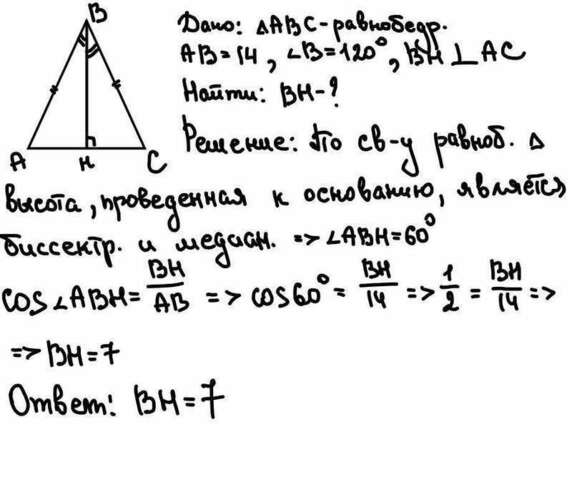 B
A
H
C
Дано: △ABC-равнобедр.
AB=14, ∠B=120°, BH⊥AC
Найти: BH-?
Решение: По св-у равноб. △
высота, проведенная к основанию, является
биссектр. и медиан. => ∠ABH=60°
cos∠ABH= BH/AB => cos60°= BH/14 => 1/2 = BH/14 =>
=> BH=7
Ответ: BH=7